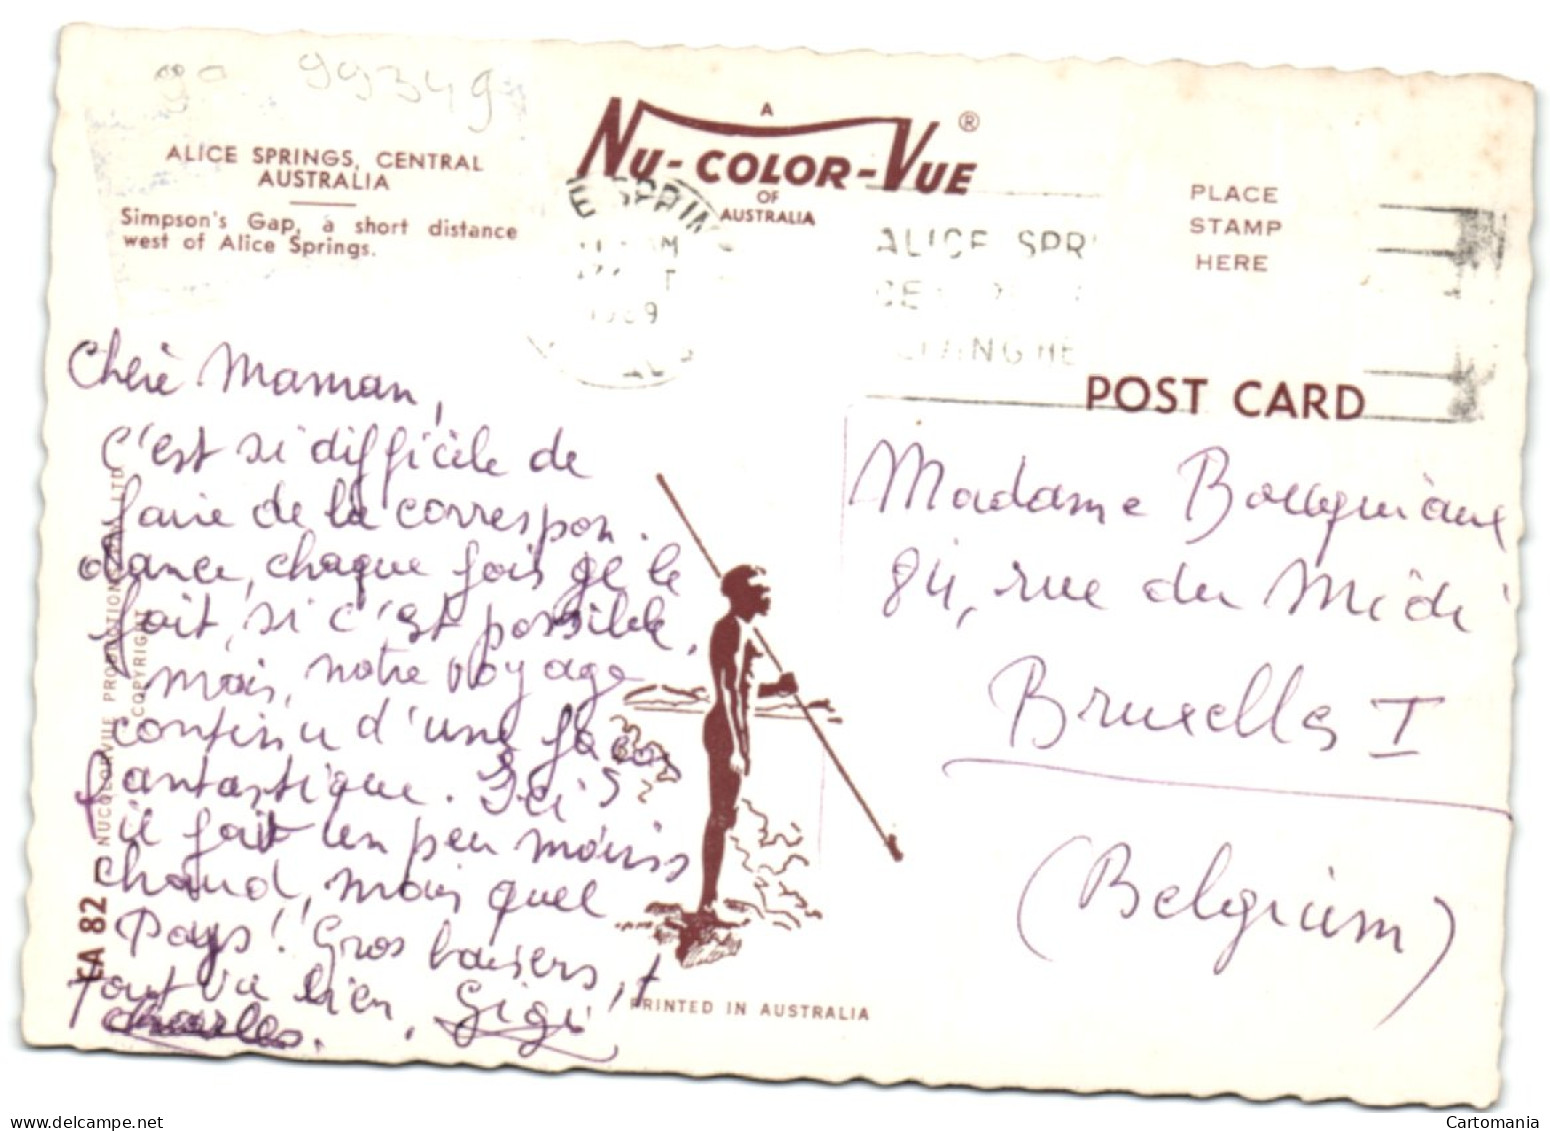 go 99349
ALICE SPRINGS, CENTRAL
AUSTRALIA
Simpson's Gap, a short distance
west of Alice Springs.
A
NU-COLOR-VUE ®
OF
AUSTRALIA
PLACE
STAMP
HERE
E SPRIN
AM
ALICE SPR
POST CARD
Chère Maman,
C'est si difficile de
faire de la correspon.
dance, chaque fois je le
fait, si c'est possible,
mais, notre voyage
continu d'une façon
fantastique. Ici
il fait un peu moins
chaud, mais quel
Pays! Gros baisers, t
Tout va bien, Gigi
Charles.
Madame
84, rue du Midi
Bruxelles I
(Belgium)
CA 82 - NUCOLORVUE PRODUCTIONS PTY. LTD.
COPYRIGHT
PRINTED IN AUSTRALIA
delcampe.net
Cartomania